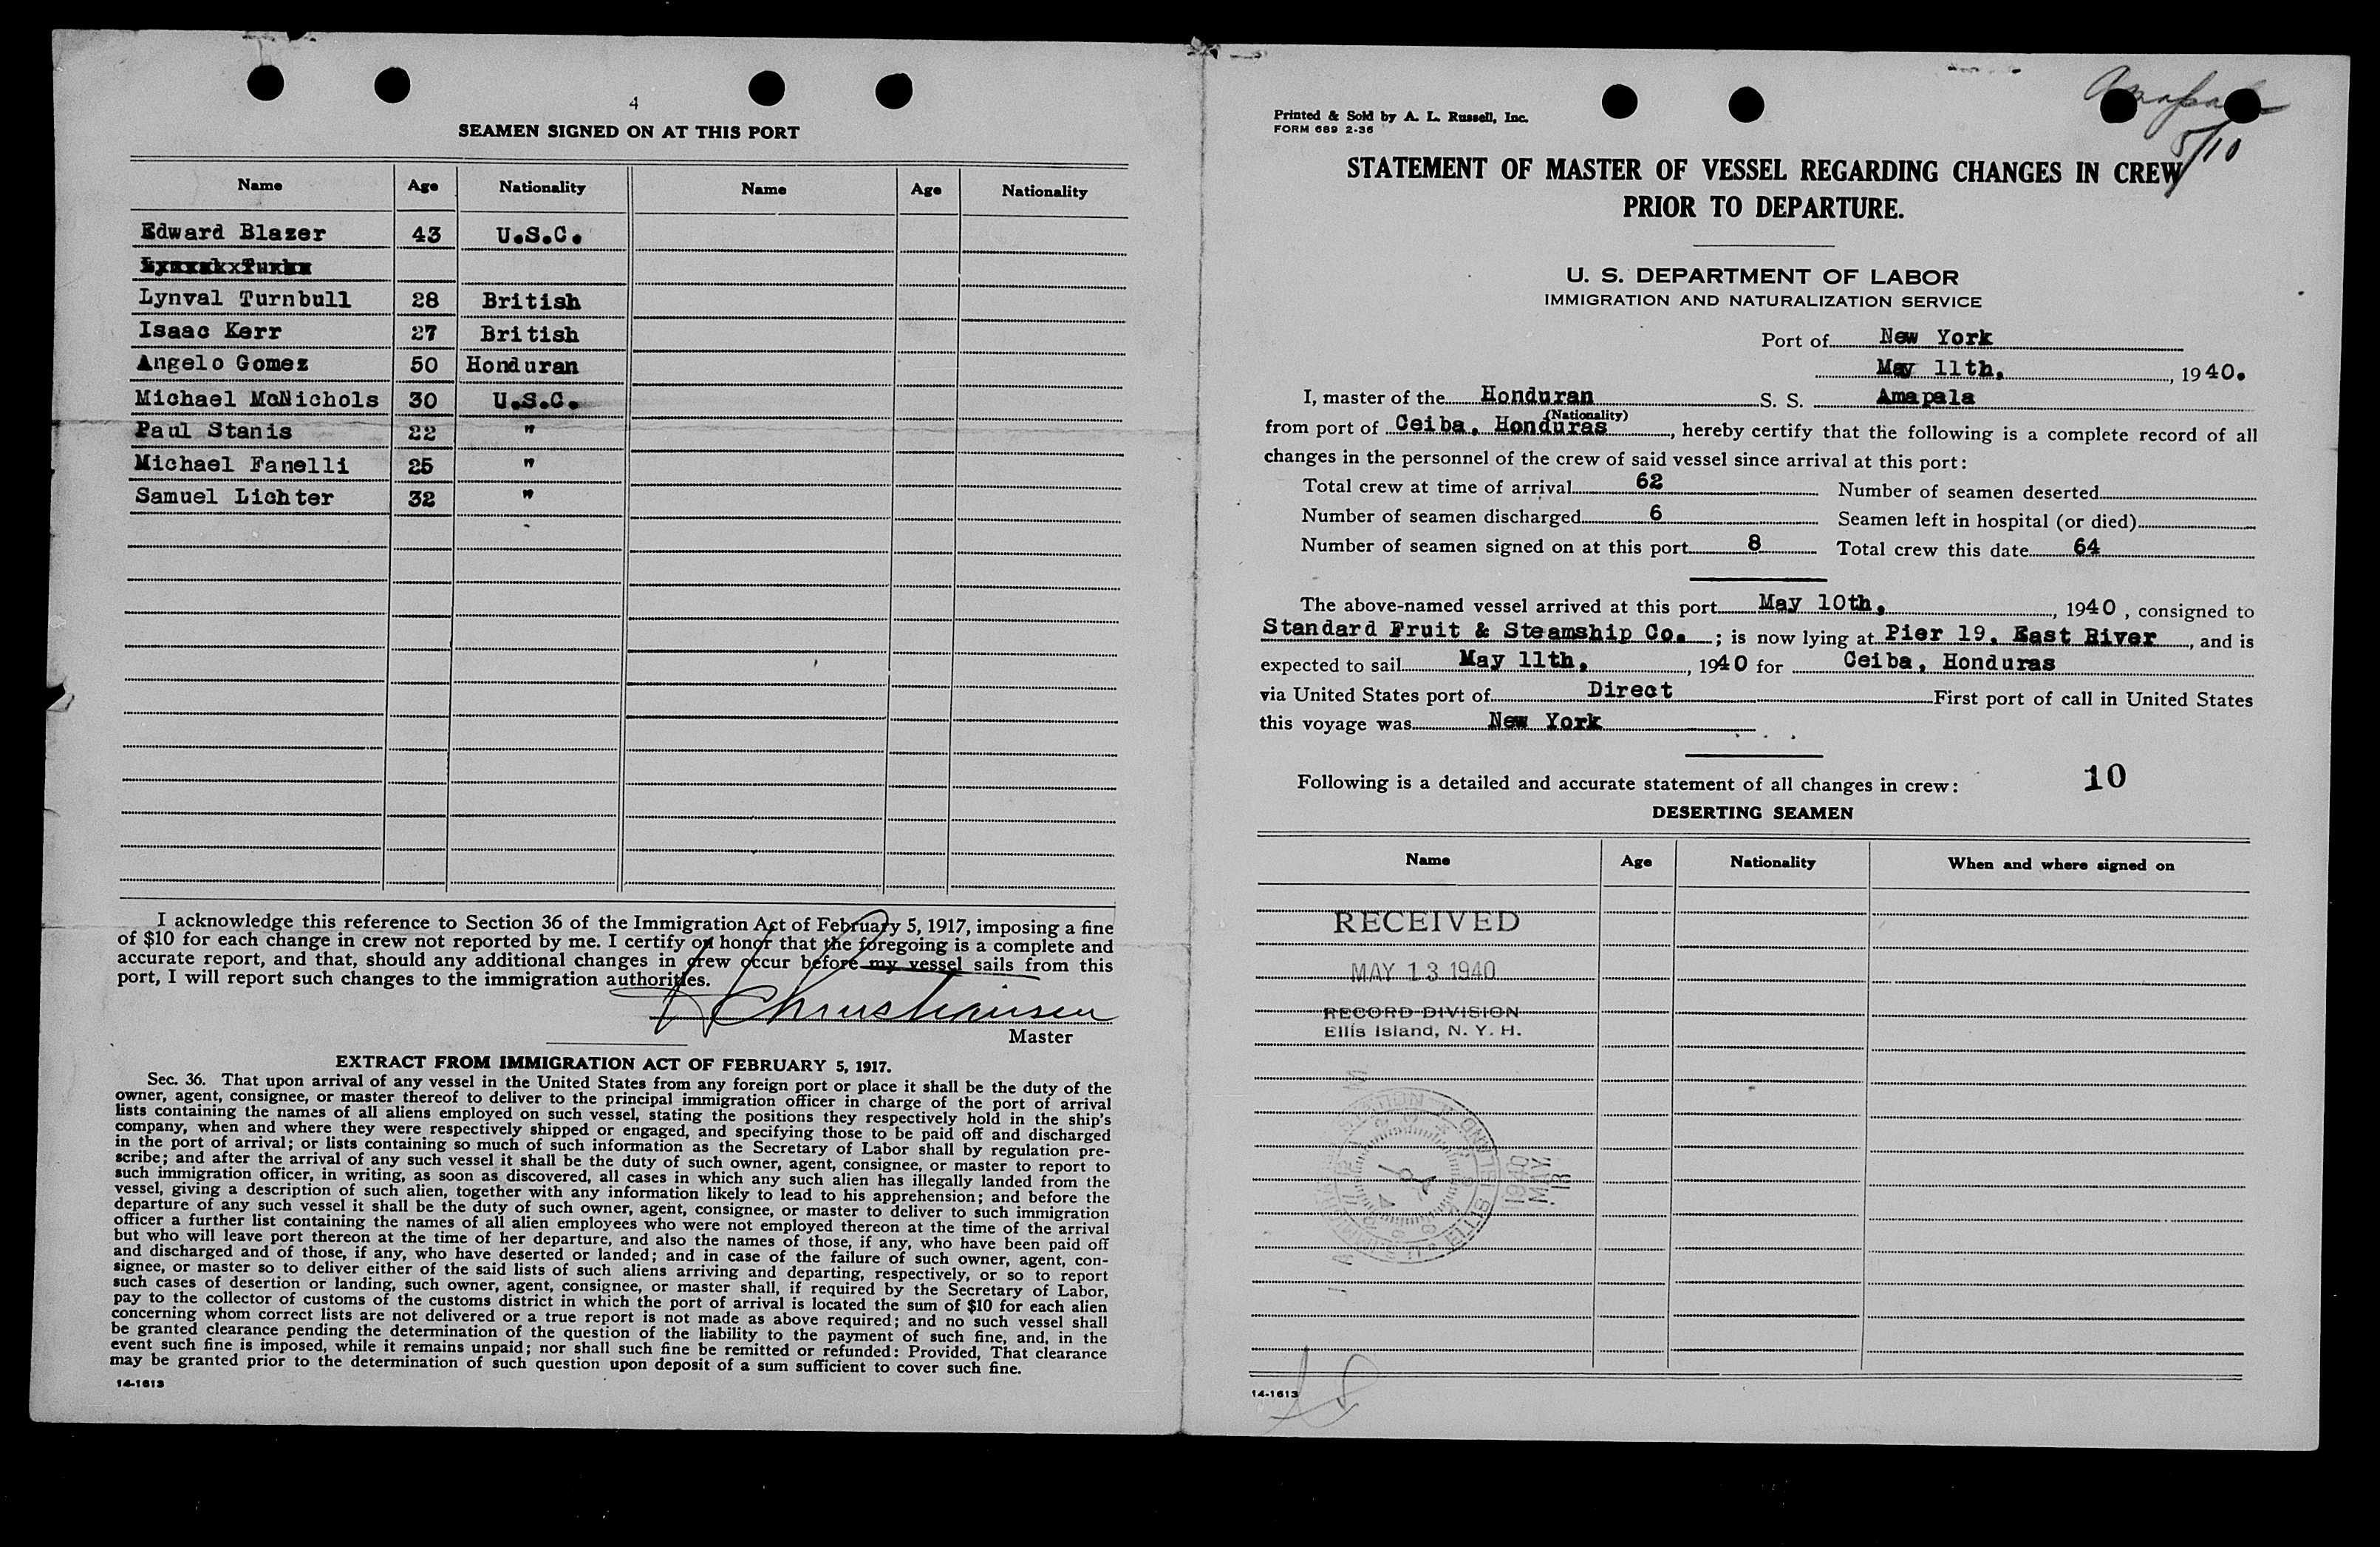 4
SEAMEN SIGNED ON AT THIS PORT
Name Age Nationality Name Age Nationality
Edward Blazer 43 U.S.C.
Lynval Turnbull 28 British
Isaac Kerr 27 British
Angelo Gomez 50 Honduran
Michael McNichols 30 U.S.C.
Paul Stanis 22 "
Michael Fanelli 25 "
Samuel Lichter 32 "
I acknowledge this reference to Section 36 of the Immigration Act of February 5, 1917, imposing a fine
of $10 for each change in crew not reported by me. I certify on honor that the foregoing is a complete and
accurate report, and that, should any additional changes in crew occur before my vessel sails from this
port, I will report such changes to the immigration authorities.
Christiansen
Master
EXTRACT FROM IMMIGRATION ACT OF FEBRUARY 5, 1917.
Sec. 36. That upon arrival of any vessel in the United States from any foreign port or place it shall be the duty of the
owner, agent, consignee, or master thereof to deliver to the principal immigration officer in charge of the port of arrival
lists containing the names of all aliens employed on such vessel, stating the positions they respectively hold in the ship's
company, when and where they were respectively shipped or engaged, and specifying those to be paid off and discharged
in the port of arrival; or lists containing so much of such information as the Secretary of Labor shall by regulation pre-
scribe; and after the arrival of any such vessel it shall be the duty of such owner, agent, consignee, or master to report to
such immigration officer, in writing, as soon as discovered, all cases in which any such alien has illegally landed from the
vessel, giving a description of such alien, together with any information likely to lead to his apprehension; and before the
departure of any such vessel it shall be the duty of such owner, agent, consignee, or master to deliver to such immigration
officer a further list containing the names of all alien employees who were not employed thereon at the time of the arrival
but who will leave port thereon at the time of her departure, and also the names of those, if any, who have been paid off
and discharged and of those, if any, who have deserted or landed; and in case of the failure of such owner, agent, con-
signee, or master so to deliver either of the said lists of such aliens arriving and departing, respectively, or so to report
such cases of desertion or landing, such owner, agent, consignee, or master shall, if required by the Secretary of Labor,
pay to the collector of customs of the customs district in which the port of arrival is located the sum of $10 for each alien
concerning whom correct lists are not delivered or a true report is not made as above required; and no such vessel shall
be granted clearance pending the determination of the question of the liability to the payment of such fine, and, in the
event such fine is imposed, while it remains unpaid; nor shall such fine be remitted or refunded: Provided, That clearance
may be granted prior to the determination of such question upon deposit of a sum sufficient to cover such fine.
14-1613
Amapala
5/10
Printed & Sold by A. L. Russell, Inc.
FORM 689 2-36
STATEMENT OF MASTER OF VESSEL REGARDING CHANGES IN CREW
PRIOR TO DEPARTURE.
U. S. DEPARTMENT OF LABOR
IMMIGRATION AND NATURALIZATION SERVICE
Port of New York
May 11th, , 1940.
I, master of the Honduran S. S. Amapala
(Nationality)
from port of Ceiba, Honduras , hereby certify that the following is a complete record of all
changes in the personnel of the crew of said vessel since arrival at this port:
Total crew at time of arrival 62 Number of seamen deserted
Number of seamen discharged 6 Seamen left in hospital (or died)
Number of seamen signed on at this port 8 Total crew this date 64
The above-named vessel arrived at this port May 10th, , 1940 , consigned to
Standard Fruit & Steamship Co. ; is now lying at Pier 19, East River , and is
expected to sail May 11th, , 1940 for Ceiba, Honduras
via United States port of Direct First port of call in United States
this voyage was New York
Following is a detailed and accurate statement of all changes in crew: 10
DESERTING SEAMEN
Name Age Nationality When and where signed on
RECEIVED
MAY 13 1940
RECORD DIVISION
Ellis Island, N. Y. H.
1940
MAY
14-1613